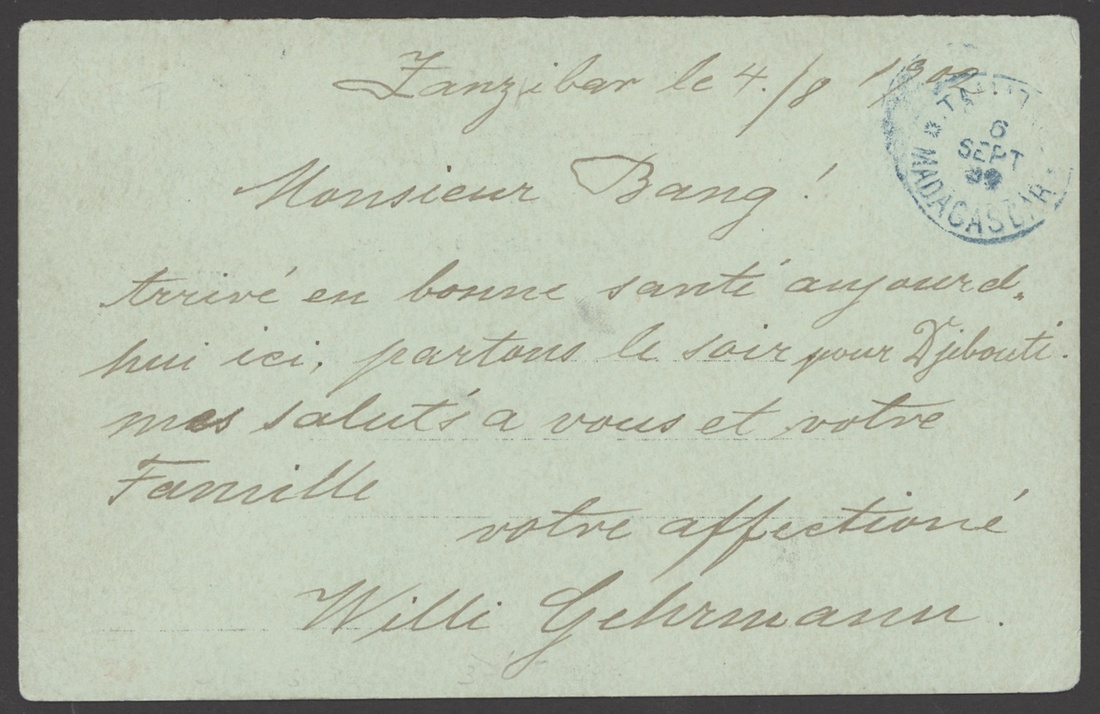 Zanzibar le 4./8 1900
Monsieur Bang!
Arrivé en bonne santé aujourd-
hui ici, partons le soir pour Djibouti.
mes saluts a vous et votre
Famille
votre affectioné
Willi Gehrmann.
6
SEPT
MADAGASCAR